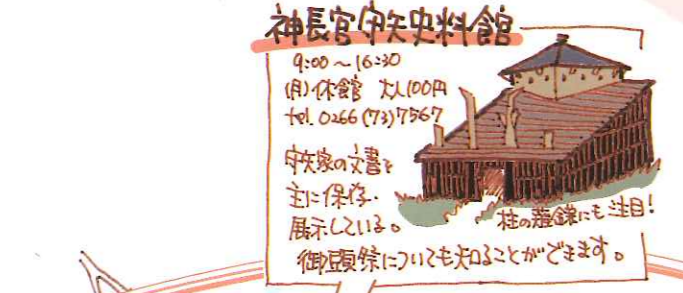 神長官守矢史料館
9:00～16:30
(月)休館 大人100円
tel. 0266(73)7567
守矢家の文書を
主に保存・
展示している。
柱の薙鎌にも注目!
御頭祭についても知ることができます。